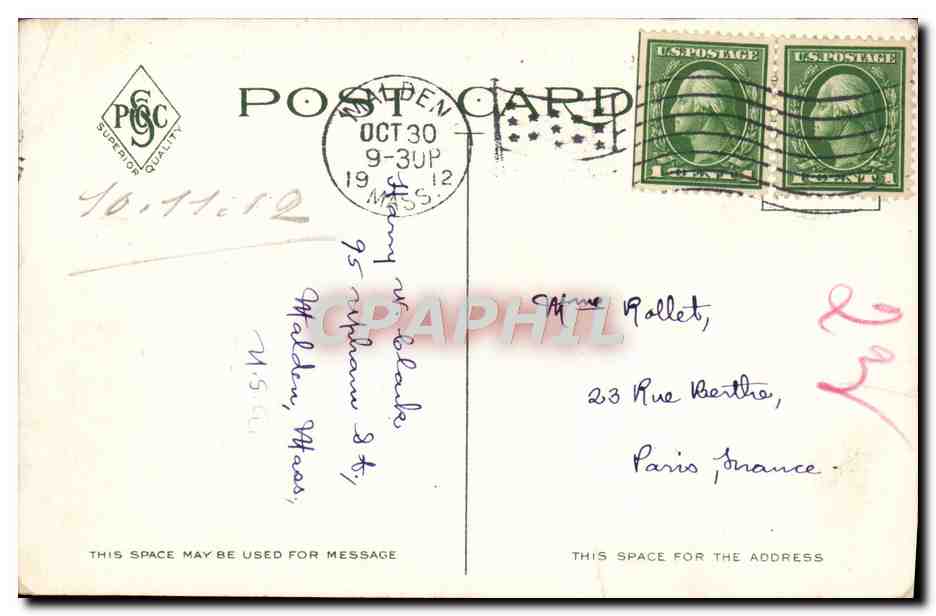 POST CARD
S
PCO C
S
SUPERIOR QUALITY
MALDEN
OCT 30
9-30P
19 12
MASS.
U.S. POSTAGE
U.S. POSTAGE
1 1
1 1
10.11.12
Harry W. Clark
95 Upham St.,
Malden, Mass.,
U.S.A.
CPAPHIL
Mme Rollet,
23 Rue Berthe,
Paris, France.
THIS SPACE MAY BE USED FOR MESSAGE
THIS SPACE FOR THE ADDRESS